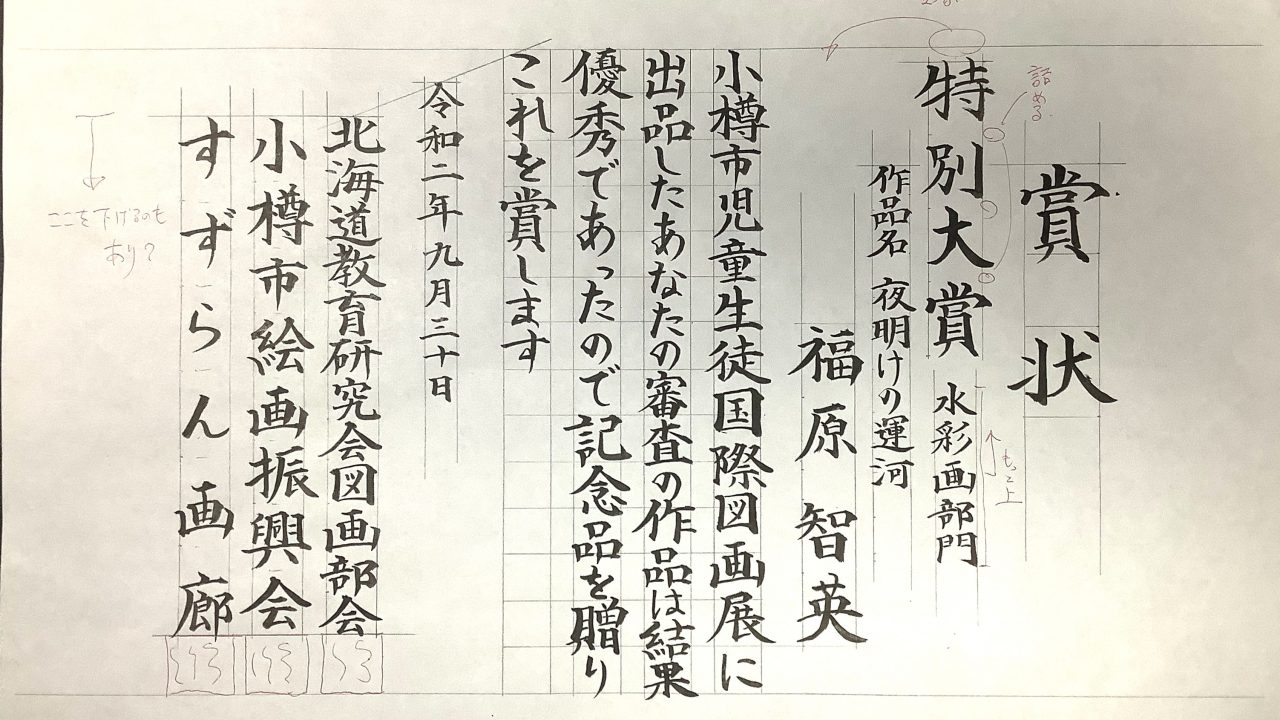 賞状
特別大賞 水彩画部門
作品名 夜明けの運河
福原智英
小樽市児童生徒国際図画展に
出品したあなたの審査の作品は結果
優秀であったので記念品を贈り
これを賞します
令和二年九月三十日
北海道教育研究会図画部会
小樽市絵画振興会
すずらん画廊
詰める
もっと上
ここを下げるのも
あり?